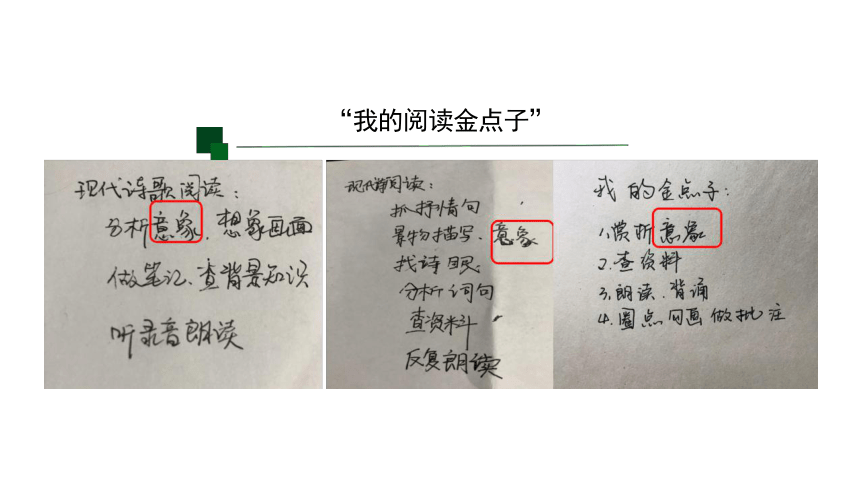 “我的阅读金点子”
现代诗歌阅读：
分析意象、想象画面
做笔记、查背景知识
听录音朗读
现代诗阅读：
抓抒情句
景物描写、意象
找诗眼
分析词句
查资料
反复朗读
我的金点子：
1.赏析意象
2.查资料
3.朗读、背诵
4.圈点勾画做批注